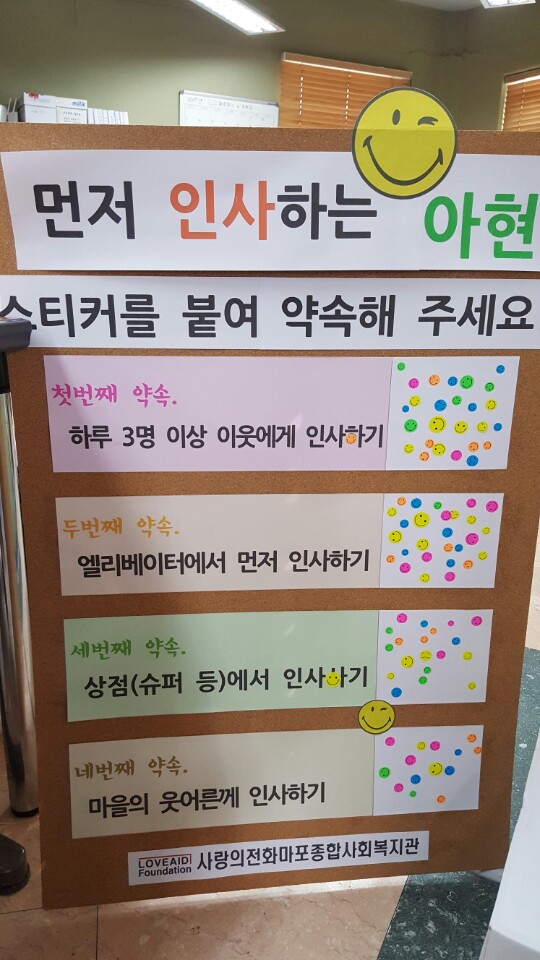 먼저 인사하는 아현
스티커를 붙여 약속해 주세요
첫번째 약속.
하루 3명 이상 이웃에게 인사하기
두번째 약속.
엘리베이터에서 먼저 인사하기
세번째 약속.
상점(슈퍼 등)에서 인사하기
네번째 약속.
마을의 웃어른께 인사하기
LOVEAID
Foundation
사랑의전화마포종합사회복지관